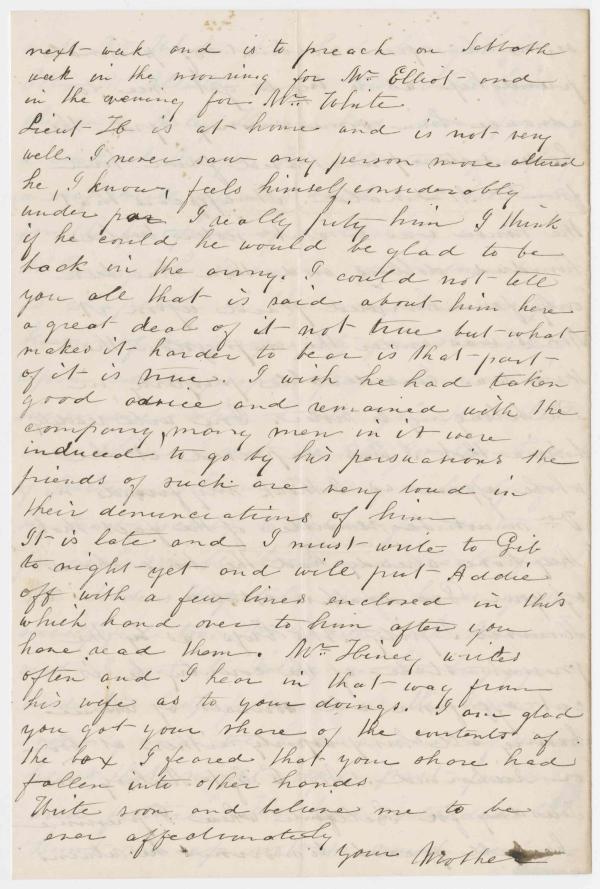 next week and is to preach on Sabbath
week in the morning for Mr. Elliot and
in the evening for Mr. White
Lieut H is at home and is not very
well. I never saw any person more altered
he, I know, feels himself considerably
under par I really pity him I think
if he could he would be glad to be
back in the army. I could not tell
you all that is said about him here
a great deal of it not true but what
makes it harder to bear is that part
of it is true. I wish he had taken
good advice and remained with the
company, many men in it were
induced to go by his persuasions the
friends of such are very loud in
their denunciations of him
It is late and I must write to Gib
to night yet and will put Addie
off with a few lines enclosed in this
which hand over to him after you
have read them. Mr. Hiney writes
often and I hear in that way from
his wife as to your doings. I am glad
you got your share of the contents of
the box I feared that your share had
fallen into other hands
Write soon and believe me to be
ever affectionately
your Mother